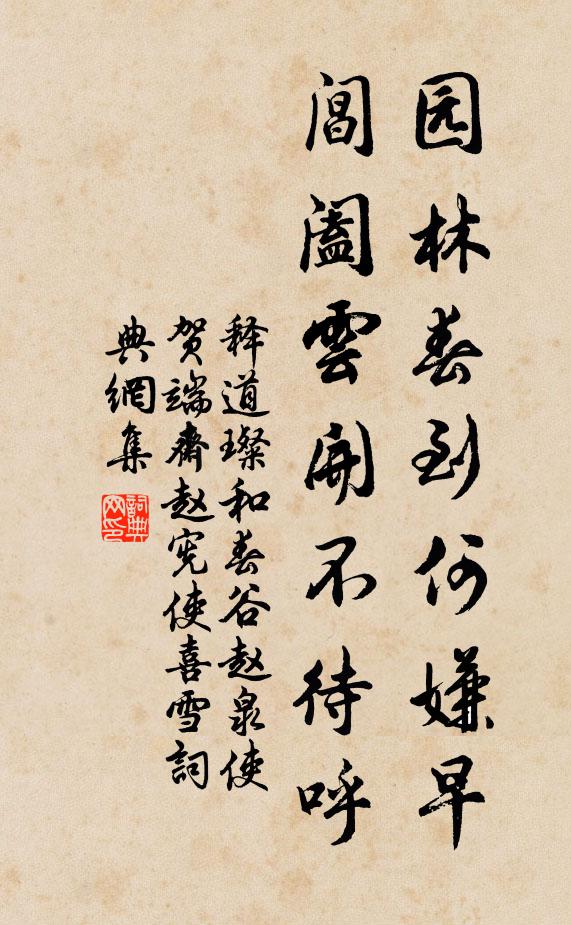 园林春到何嫌早
阊阖雲開不待呼
释道璨和春谷赵泉使
贺端齋赵宪使喜雪詞
典網集
詞典
网印